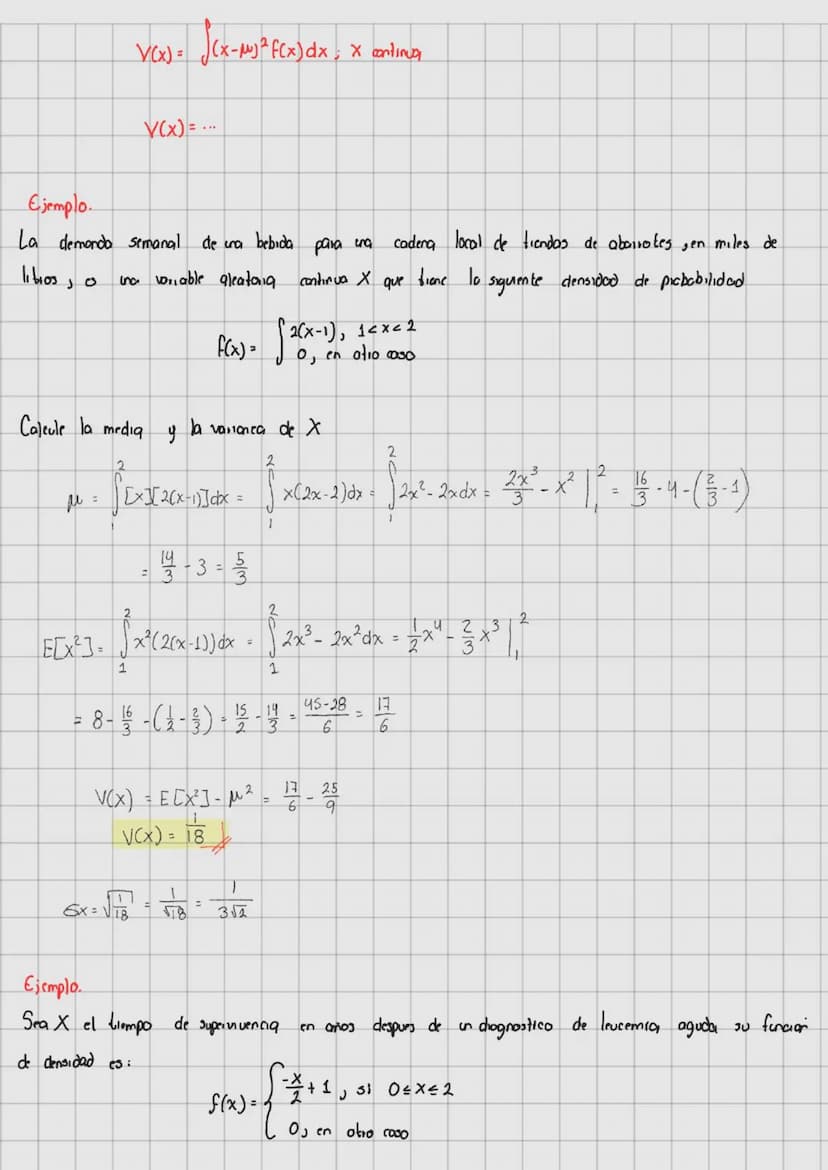 V(x) = ∫(x-μ)² f(x)dx ; x continua
V(x) = ...
Ejemplo.
La demanda semanal de una bebida para una cadena local de tiendas de abarrotes, en miles de
litros, es una variable aleatoria continua X que tiene la siguiente densidad de probabilidad
f(x) = { 2(x-1), 1<x<2
0, en otro caso
Calcule la media y la varianza de X
μ = ∫₁² [x][2(x-1)]dx = ∫₁² x(2x-2)dx = ∫₁² 2x² - 2x dx = 2x³/3 - x² |₁² = 16/3 - 4 - (2/3 - 1)
= 14/3 - 3 = 5/3
E[x²] = ∫₁² x²(2(x-1))dx = ∫₁² 2x³ - 2x² dx = 1/2 x⁴ - 2/3 x³ |₁²
= 8 - 16/3 - (1/2 - 2/3) = 15/2 - 14/3 = 45-28/6 = 17/6
V(x) = E[x²] - μ² = 17/6 - 25/9
V(x) = 1/18
σx = √(1/18) = 1/√18 = 1/3√2
Ejemplo.
Sea X el tiempo de supervivencia en años despues de un diagnostico de leucemia aguda su funcion
de densidad es:
f(x) = { -x/2 + 1, si 0≤x≤2
0, en otro caso